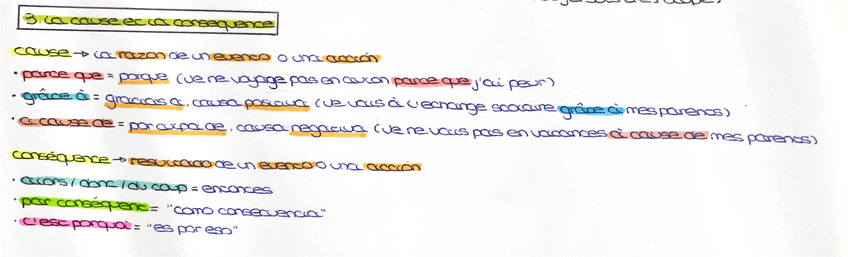 3. la cause et la conséquence
cause → la razon de un evento o una acción
• parce que = porque (je ne voyage pas en avion parce que j'ai peur)
• grâce à = gracias a, causa positiva (je vais à l'echange scolaire grâce à mes parents)
• a cause de = por culpa de, causa negativa (je ne vais pas en vacances à cause de mes parents)
conséquence → resultado de un evento o una acción
• alors / donc / du coup = entonces
• par conséquent = "como consecuencia"
• c'est porquoi = "es por eso"